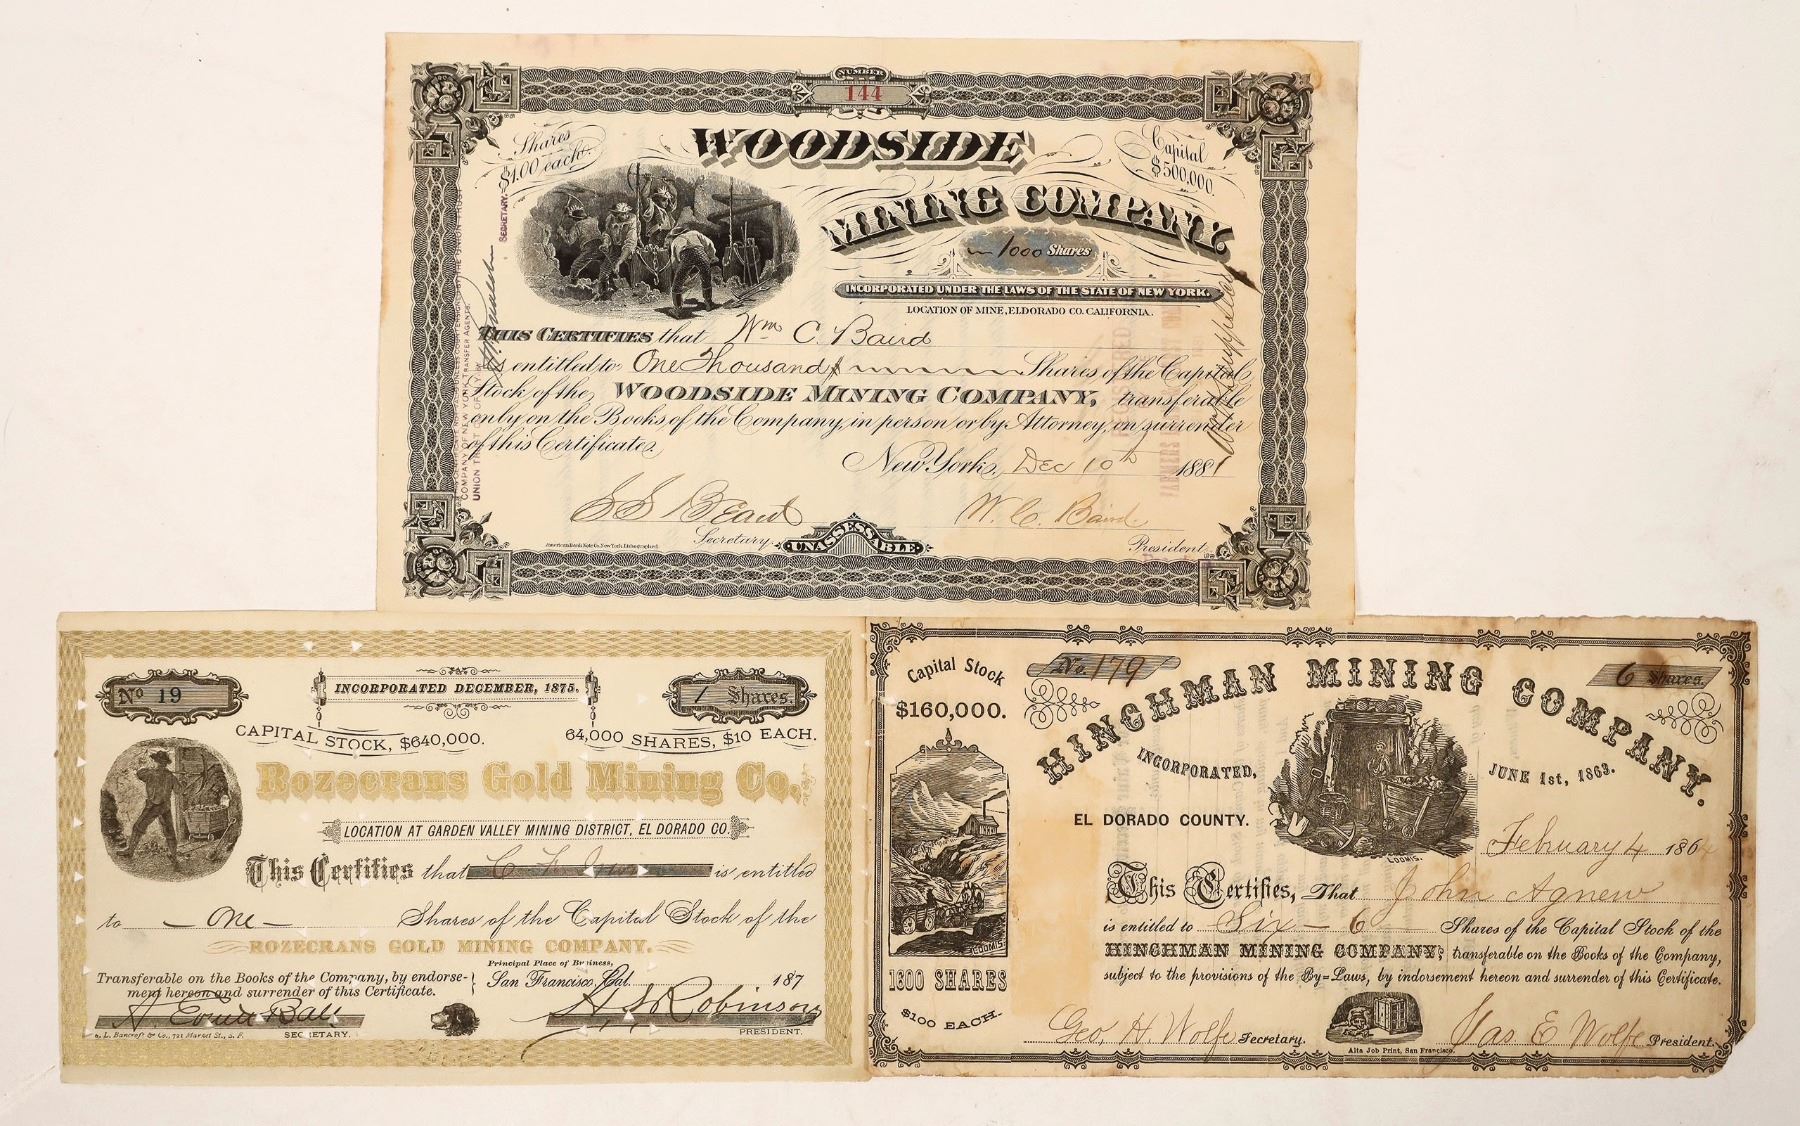 NUMBER
144
Shares
$1.00 each.
WOODSIDE
Capital
$500,000.
MINING COMPANY.
1000 Shares
INCORPORATED UNDER THE LAWS OF THE STATE OF NEW YORK.
LOCATION OF MINE, ELDORADO CO. CALIFORNIA.
SECRETARY.
THIS CERTIFIES that Wm C. Baird
is entitled to One Thousand Shares of the Capital
Stock of the WOODSIDE MINING COMPANY, transferable
only on the Books of the Company, in person or by Attorney, on surrender
of this Certificate.
New York, Dec 10th 1881
S S Beard
Secretary.
UNASSESSABLE
W. C. Baird
President.
American Bank Note Co. New York. Lithographed.
COMPANY OF NEW YORK, TRANSFER AGENTS.
No 19
INCORPORATED DECEMBER, 1875.
1 Shares.
CAPITAL STOCK, $640,000.
64,000 SHARES, $10 EACH.
Rozecrans Gold Mining Co.
LOCATION AT GARDEN VALLEY MINING DISTRICT, EL DORADO CO.
This Certifies that is entitled
to One Shares of the Capital Stock of the
ROZECRANS GOLD MINING COMPANY.
Transferable on the Books of the Company, by endorse-
ment hereon and surrender of this Certificate.
Principal Place of Business,
San Francisco, Cal. 187
Robinson
SECRETARY.
PRESIDENT.
A. L. Bancroft & Co., 721 Market St., S. F.
Capital Stock
$160,000.
No. 179
HINCHMAN MINING COMPANY.
6 Shares.
INCORPORATED,
JUNE 1st, 1863.
EL DORADO COUNTY.
LOOMIS.
February 4 1864
This Certifies, That John Agnew
is entitled to Six - 6 Shares of the Capital Stock of the
HINCHMAN MINING COMPANY; transferable on the Books of the Company,
subject to the provisions of the By=Laws, by indorsement hereon and surrender of this Certificate.
LOOMIS.
1600 SHARES
$100 EACH.
Geo. H. Wolfe Secretary.
Alta Job Print, San Francisco.
Jas E Wolfe President.